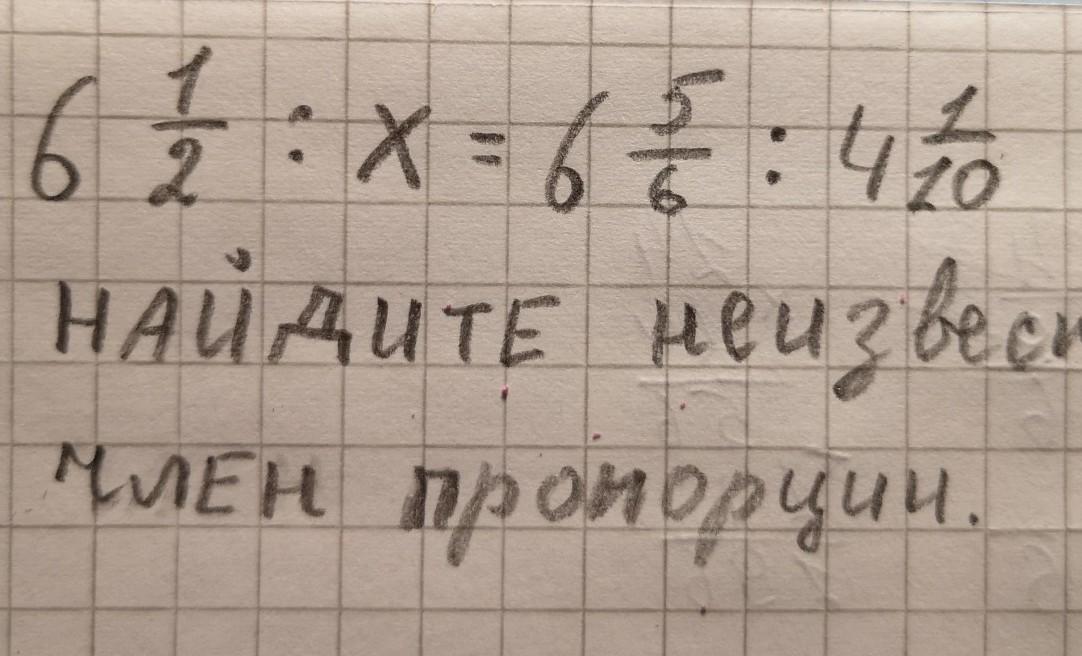 6 1/2 : x = 6 5/6 : 4 1/10
НАЙДИТЕ неизвест
член пропорции.